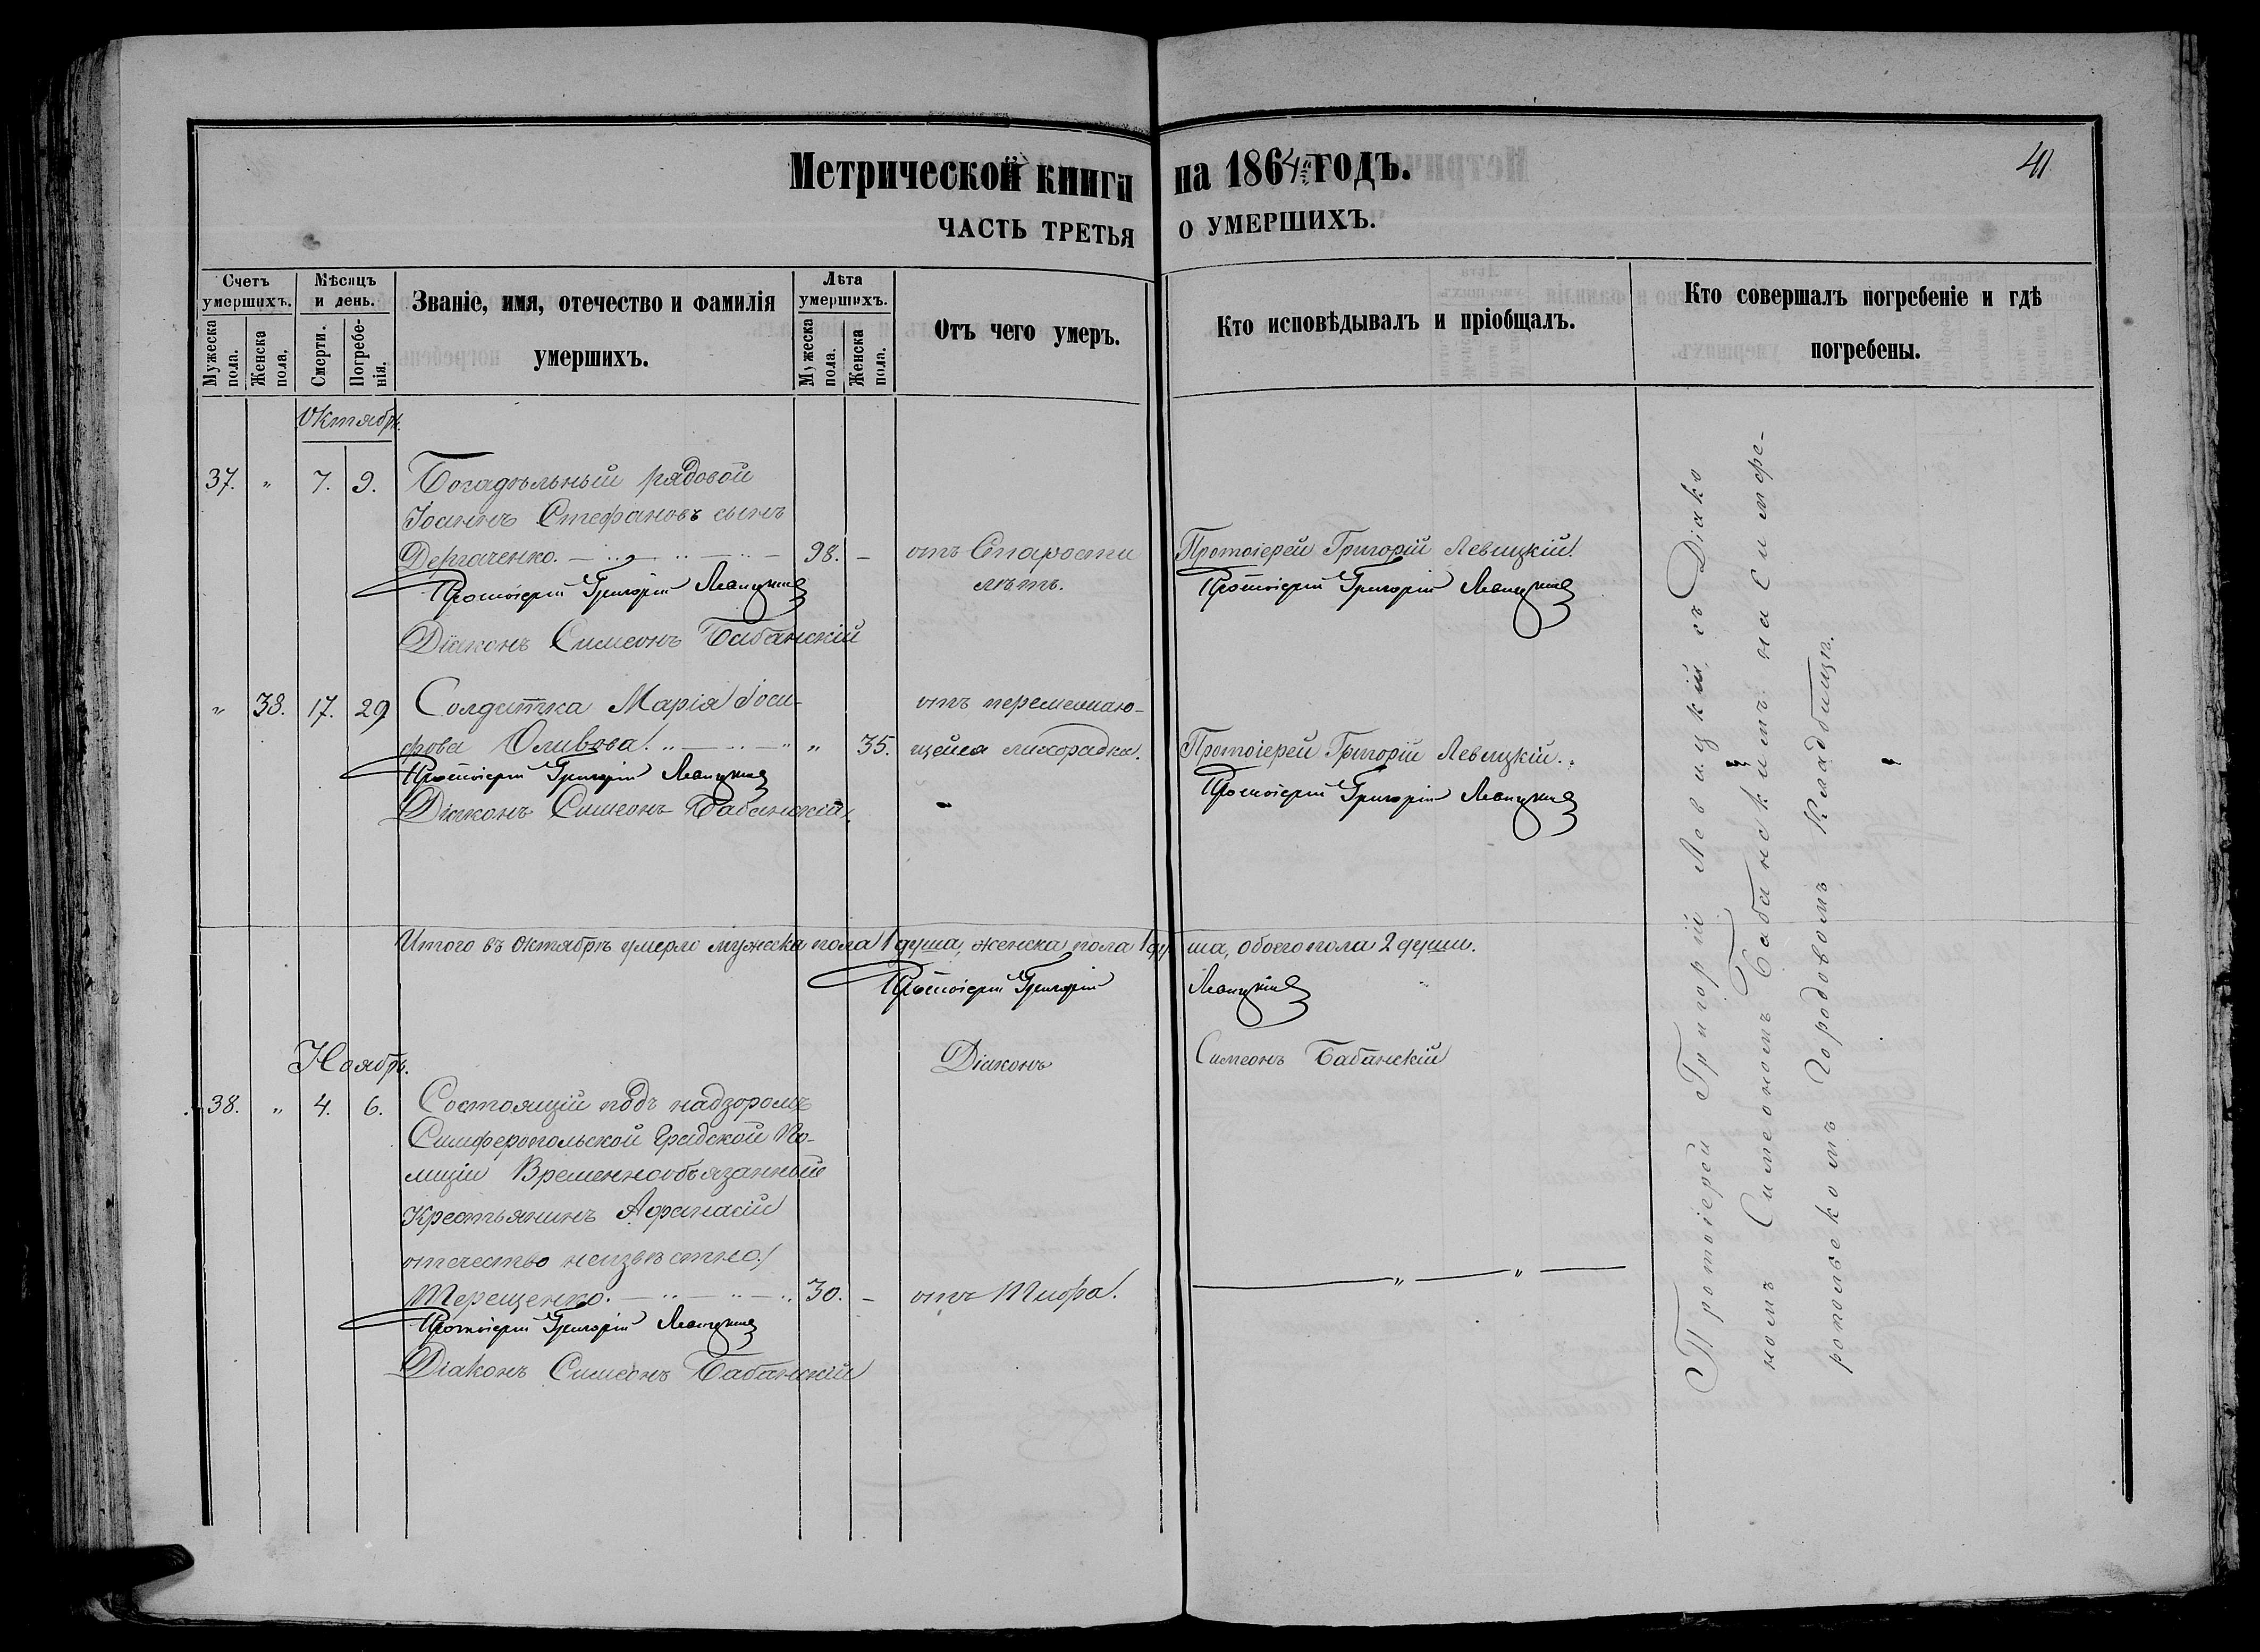 Метрической книги на 1864й годъ.
41
ЧАСТЬ ТРЕТЬЯ О УМЕРШИХЪ.
Счетъ умершихъ.
Мужеска пола.
Женска пола.
Мѣсяцъ и день.
Смерти.
Погребенія.
Званіе, имя, отечество и фамилія умершихъ.
Лѣта умершихъ.
Мужеска пола.
Женска пола.
Отъ чего умеръ.
Кто исповѣдывалъ и пріобщалъ.
Кто совершалъ погребеніе и гдѣ погребены.
Октябрь.
37. „ 7. 9. Богадѣльный рядовой
Іоаннъ Стефановъ сынъ
Дергаченко. 98. – отъ Старости Протоіерей Григорій Левицкій.
лѣтъ.
Протоіерей Григорій Левицкій Протоіерей Григорій Левицкій
Діаконъ Симеонъ Бабанскій
„ 38. 17. 29 Солдатка Марія Іоси- отъ перемежаю-
фова Оливова. „ 35. щейся лихорадки. Протоіерей Григорій Левицкій.
Протоіерей Григорій Левицкій Протоіерей Григорій Левицкій
Діаконъ Симеонъ Бабанскій
Итого въ Октябрѣ умерло мужеска пола 1 душа, женска пола 1 душа, обоего пола 2 души.
Протоіерей Григорій Левицкій
Діаконъ Симеонъ Бабанскій
Ноябрь.
38. „ 4. 6. Состоящій подъ надзоромъ
Симферопольской Градской По-
лиціи Временнообязанный
Крестьянинъ Афанасій
отчество неизвѣстно
Терещенко. 30. – отъ Тифа.
Протоіерей Григорій Левицкій
Діаконъ Симеонъ Бабанскій
Протоіерей Григорій Левицкій, съ Діако
номъ Симеономъ Бабанскимъ на Симфе-
ропольскомъ Городовомъ Кладбищѣ.